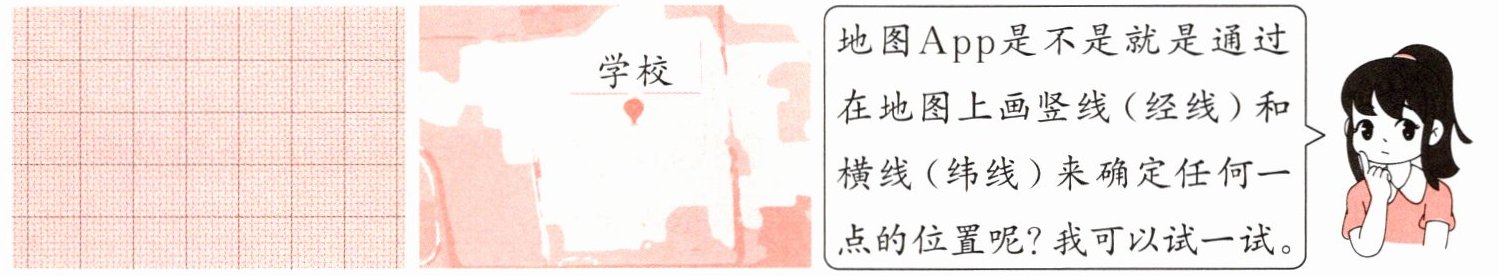 学校
地图App是不是就是通过
在地图上画竖线（经线）和
横线（纬线）来确定任何一
点的位置呢？我可以试一试。